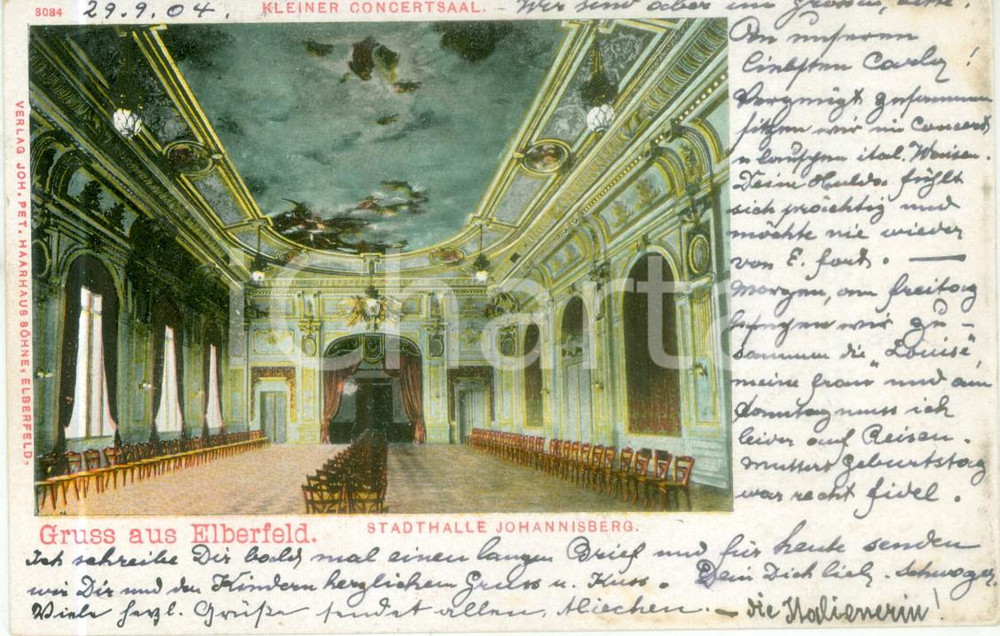 8084
29.9.04.
KLEINER CONCERTSAAL.
- Wir sind aber im grossen,
An unseren
liebsten
Vergnügt zusammen
sitzen wir im Concert
u lauschen ital. Weisen.
Deine Hulda fühlt
sich prächtig und
möchte nie wieder
von E. fort. —
Morgen, am Freitag
wir zu-
sammen die „Louise"
meine Frau und am
Sonntag muss ich
leider auf Reisen.
Mutters Geburtstag
war recht fidel.
VERLAG JOH. PET. HAARHAUS SÖHNE, ELBERFELD,
iCharta
Gruss aus Elberfeld.
STADTHALLE JOHANNISBERG.
Ich schreibe Dir bald mal einen langen Brief und für heute senden
wir Dir und den Kindern herzlichen Gruss u. Kuss. Dein Dich lieb. Schwager
Viele herzl. Grüße sendet allen, - die Italienerin!